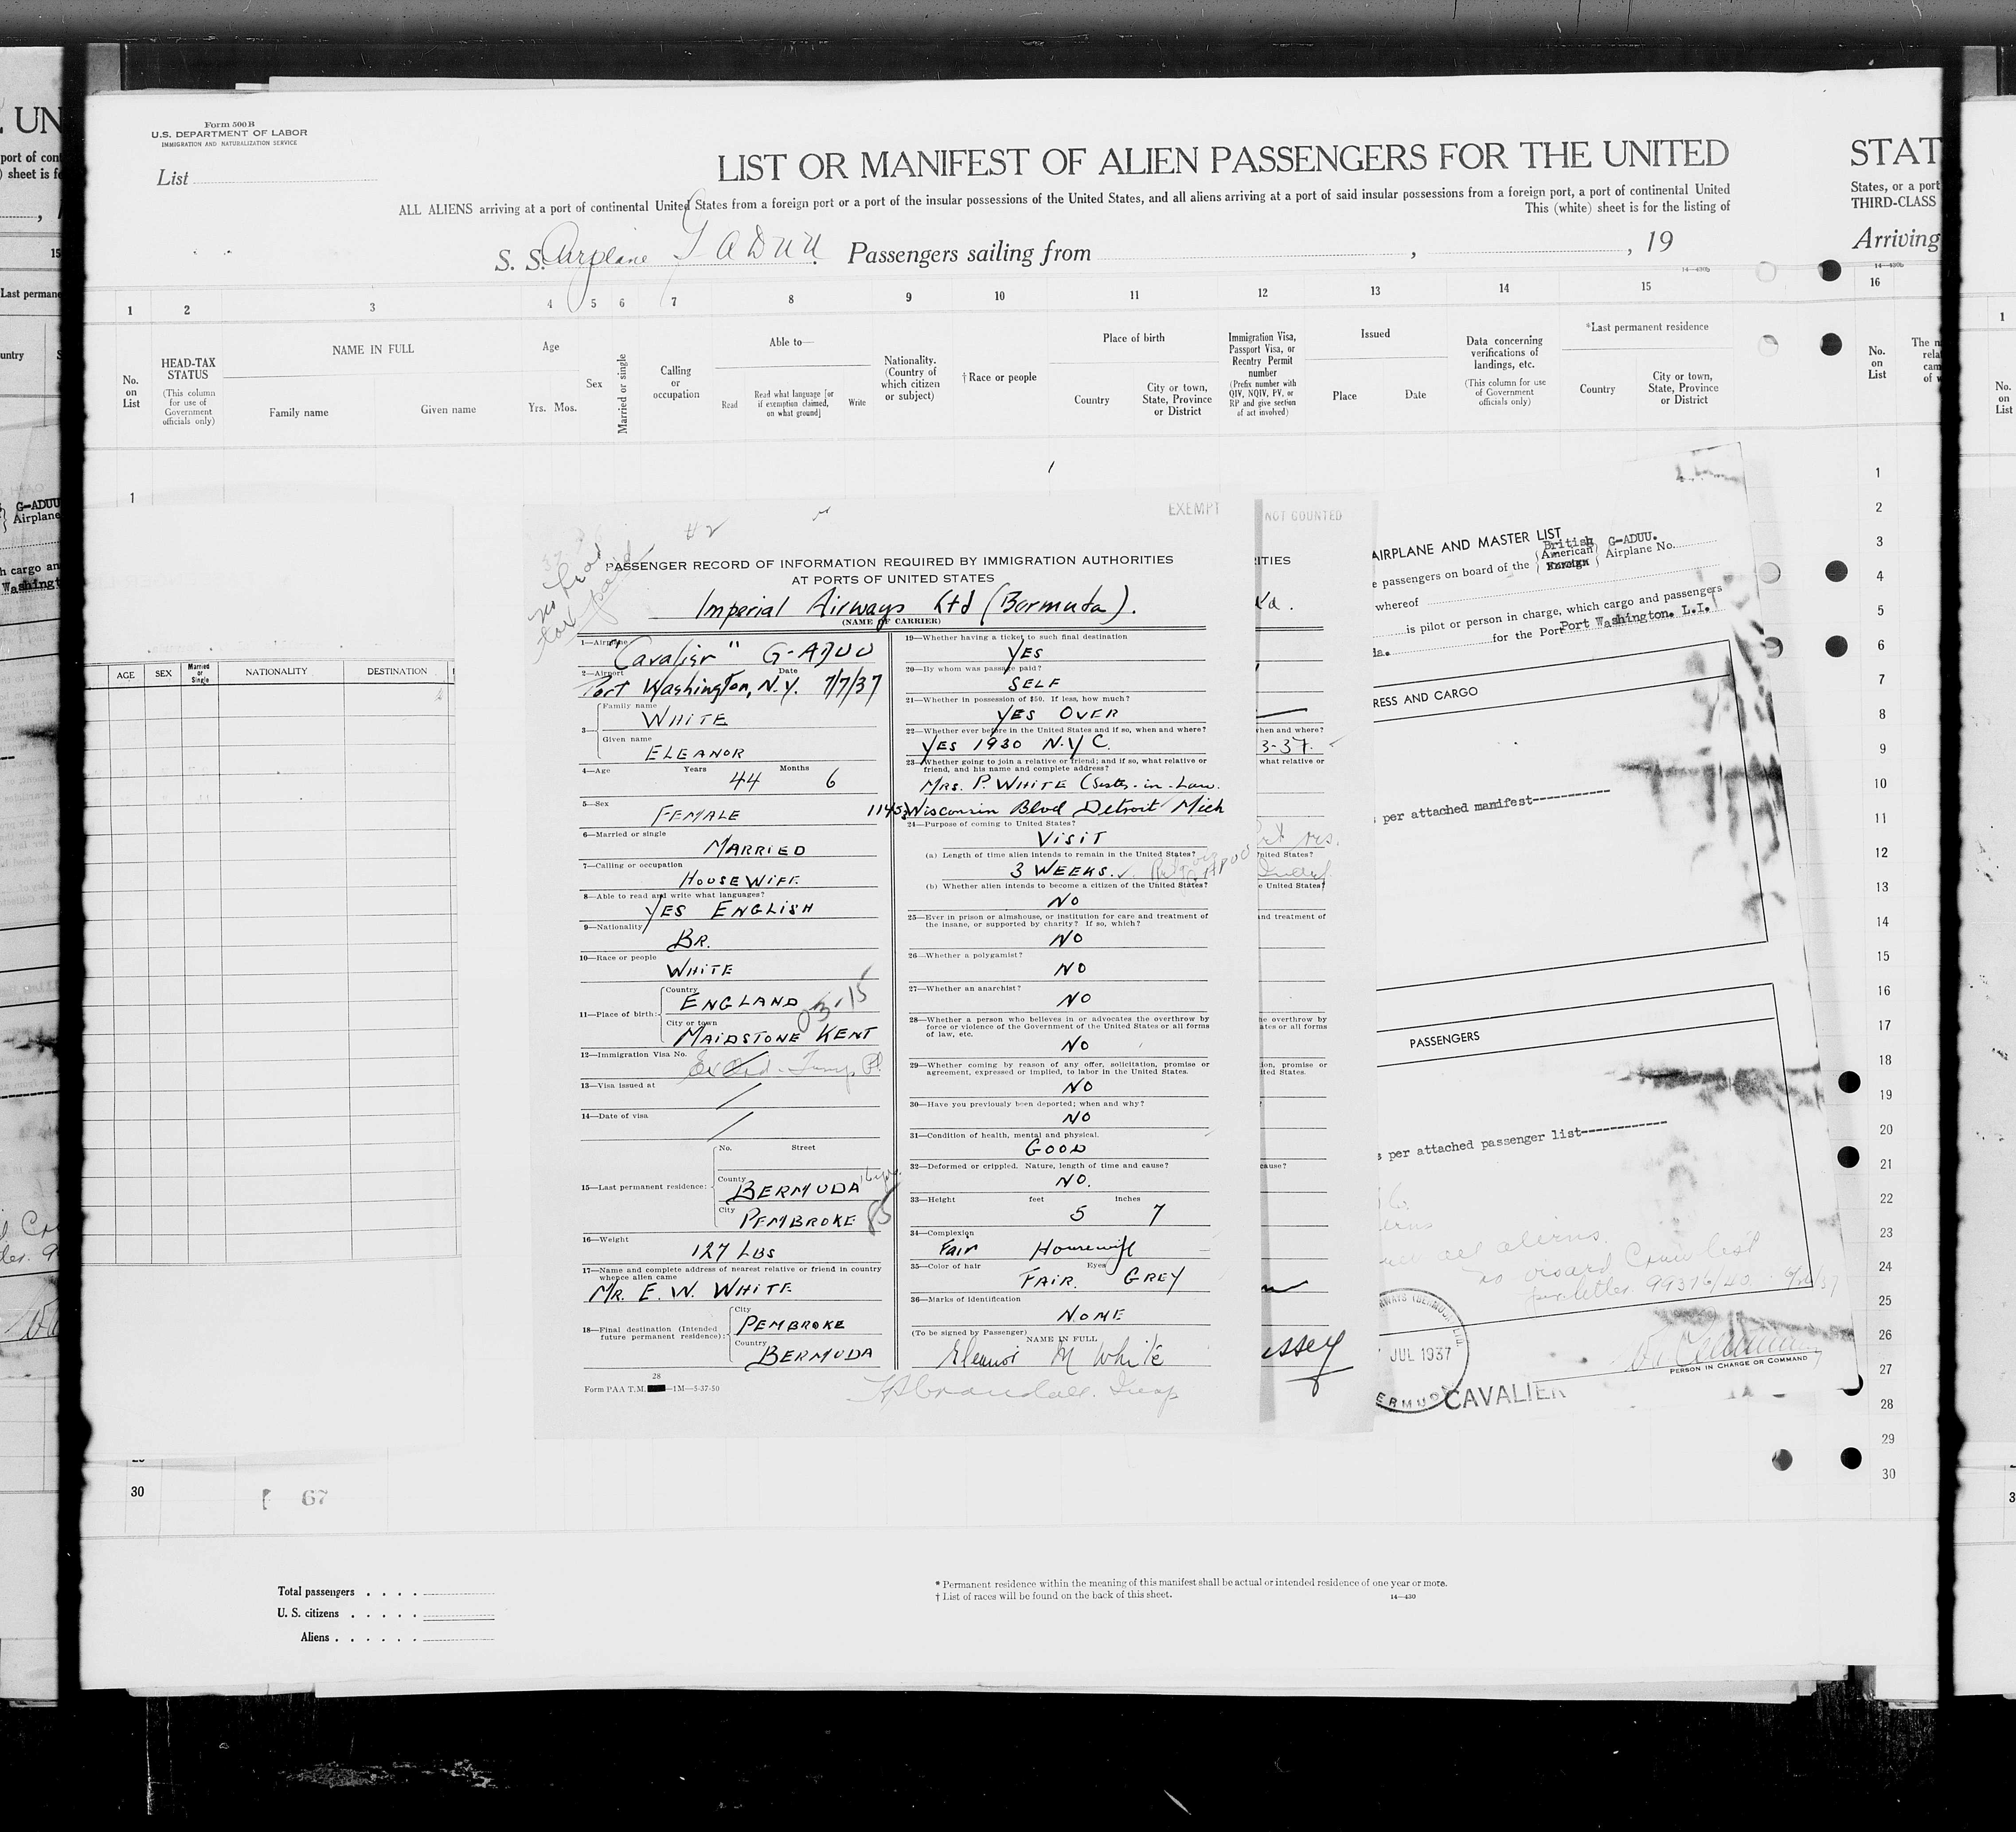 Form 500 B
U.S. DEPARTMENT OF LABOR
IMMIGRATION AND NATURALIZATION SERVICE
List
LIST OR MANIFEST OF ALIEN PASSENGERS FOR THE UNITED
ALL ALIENS arriving at a port of continental United States from a foreign port or a port of the insular possessions of the United States, and all aliens arriving at a port of said insular possessions from a foreign port, a port of continental United
This (white) sheet is for the listing of
S. S. Airplane G ADUU Passengers sailing from , , 19
STAT
States, or a port
THIRD-CLASS
Arriving
1 2 3 4 5 6 7 8 9 10 11 12 13 14 15 16
No. on List
HEAD-TAX STATUS
(This column for use of Government officials only)
NAME IN FULL
Family name
Given name
Age
Yrs. Mos.
Sex
Married or single
Calling or occupation
Able to—
Read
Read what language [or if exemption claimed, on what ground]
Write
Nationality. (Country of which citizen or subject)
† Race or people
Place of birth
Country
City or town, State, Province or District
Immigration Visa, Passport Visa, or Reentry Permit number
(Prefix number with QIV, NQIV, PV, or RP and give section of act involved)
Issued
Place
Date
Data concerning verifications of landings, etc.
(This column for use of Government officials only)
*Last permanent residence
Country
City or town, State, Province or District
No. on List
AGE SEX Married or Single NATIONALITY DESTINATION
EXEMPT
#2
no head
tax paid
PASSENGER RECORD OF INFORMATION REQUIRED BY IMMIGRATION AUTHORITIES
AT PORTS OF UNITED STATES
Imperial Airways Ltd (Bermuda).
(NAME OF CARRIER)
1—Airplane
"Cavalier" G-ADUU
2—Airport Date
Port Washington, N.Y. 7/7/37
3— Family name
WHITE
Given name
ELEANOR
4—Age Years Months
44 6
5—Sex
FEMALE
6—Married or single
MARRIED
7—Calling or occupation
HOUSEWIFE
8—Able to read and write what languages?
YES ENGLISH
9—Nationality
BR.
10—Race or people
WHITE
11—Place of birth: Country
ENGLAND
City or town
MAIDSTONE KENT
12—Immigration Visa No.
13—Visa issued at
/
14—Date of visa
/
No. Street
15—Last permanent residence: County
BERMUDA
City
PEMBROKE
16—Weight
127 LBS
17—Name and complete address of nearest relative or friend in country whence alien came
MR. E. W. WHITE
18—Final destination (Intended future permanent residence): City
PEMBROKE
Country
BERMUDA
28
Form PAA T.M. —1M—5-37-50
19—Whether having a ticket to such final destination
YES
20—By whom was passage paid?
SELF
21—Whether in possession of $50. If less, how much?
YES OVER
22—Whether ever before in the United States and if so, when and where?
YES 1930 N.Y C.
23—Whether going to join a relative or friend; and if so, what relative or friend, and his name and complete address?
MRS. P. WHITE (Sister-in-Law.
Wisconsin Blvd Detroit Mich
24—Purpose of coming to United States?
VISIT
(a) Length of time alien intends to remain in the United States?
3 WEEKS.
(b) Whether alien intends to become a citizen of the United States?
NO
25—Ever in prison or almshouse, or institution for care and treatment of the insane, or supported by charity? If so, which?
NO
26—Whether a polygamist?
NO
27—Whether an anarchist?
NO
28—Whether a person who believes in or advocates the overthrow by force or violence of the Government of the United States or all forms of law, etc.
NO
29—Whether coming by reason of any offer, solicitation, promise or agreement, expressed or implied, to labor in the United States.
NO
30—Have you previously been deported; when and why?
NO
31—Condition of health, mental and physical.
GOOD
32—Deformed or crippled. Nature, length of time and cause?
NO.
33—Height feet inches
5 7
34—Complexion
Fair Housewife
35—Color of hair Eyes
FAIR. GREY
36—Marks of identification
NONE
(To be signed by Passenger) NAME IN FULL
Eleanor M White
NOT COUNTED
AIRPLANE AND MASTER LIST
e passengers on board of the British American Foreign Airplane No. G-ADUU.
whereof
is pilot or person in charge, which cargo and passengers
for the Port Port Washington. L.I.
RESS AND CARGO
per attached manifest
PASSENGERS
s per attached passenger list
all aliens.
no visaed Crew list
per letter 99316/40
JUL 1937
CAVALIER
PERSON IN CHARGE OR COMMAND
30
67
Total passengers
U. S. citizens
Aliens
* Permanent residence within the meaning of this manifest shall be actual or intended residence of one year or more.
† List of races will be found on the back of this sheet.
14—430